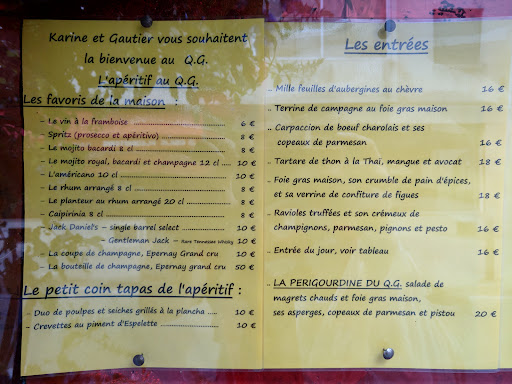 Karine et Gautier vous souhaitent
la bienvenue au Q.G.
L'apéritif au Q.G.
Les favoris de la maison :
- Le vin à la framboise 6 €
- Spritz (prosecco et apéritivo) 8 €
- Le mojito bacardi 8 cl 8 €
- Le mojito royal, bacardi et champagne 12 cl 10 €
- L'américano 10 cl 10 €
- Le rhum arrangé 8 cl 8 €
- Le planteur au rhum arrangé 20 cl 8 €
- Caipirinia 8 cl 8 €
- Jack Daniel's – single barrel select 10 €
- Gentleman Jack – Rare Tennessee Whisky 10 €
- La coupe de champagne, Epernay Grand cru 10 €
- La bouteille de champagne, Epernay grand cru 50 €
Le petit coin tapas de l'apéritif :
- Duo de poulpes et seiches grillés à la plancha ..... 10 €
- Crevettes au piment d'Espelette 10 €
Les entrées
.. Mille feuilles d'aubergines au chèvre 16 €
.. Terrine de campagne au foie gras maison 16 €
.. Carpaccion de boeuf charolais et ses
copeaux de parmesan 16 €
.. Tartare de thon à la Thaï, mangue et avocat 18 €
.. Foie gras maison, son crumble de pain d'épices,
et sa verrine de confiture de figues 18 €
.. Ravioles truffées et son crémeux de
champignons, parmesan, pignons et pesto 16 €
.. Entrée du jour, voir tableau 16 €
.. LA PERIGOURDINE DU Q.G. salade de
magrets chauds et foie gras maison,
ses asperges, copeaux de parmesan et pistou 20 €